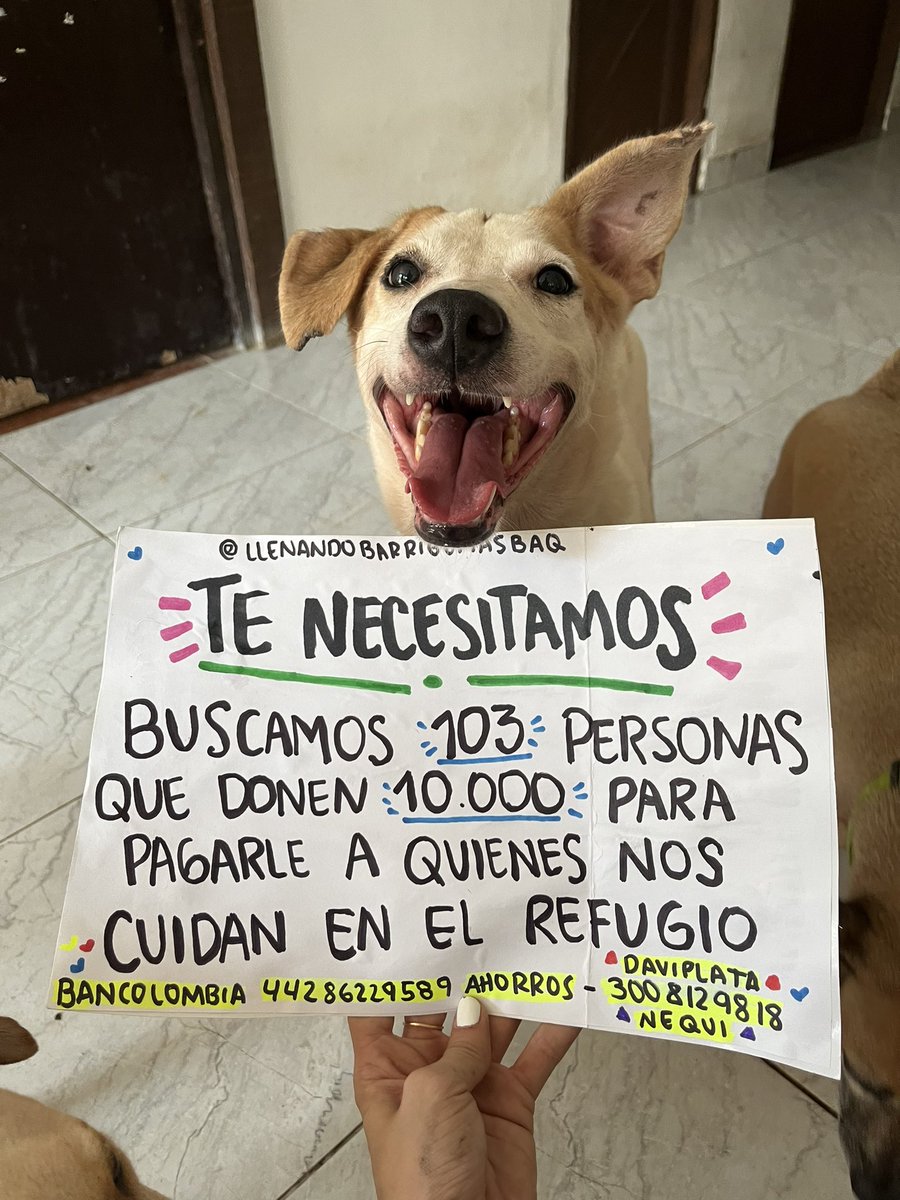 @LLENANDOBARRIGUITASBAQ
TE NECESITAMOS
BUSCAMOS 103 PERSONAS
QUE DONEN 10.000 PARA
PAGARLE A QUIENES NOS
CUIDAN EN EL REFUGIO
BANCOLOMBIA 44286229589 AHORROS - 3008129818
DAVIPLATA
NEQUI